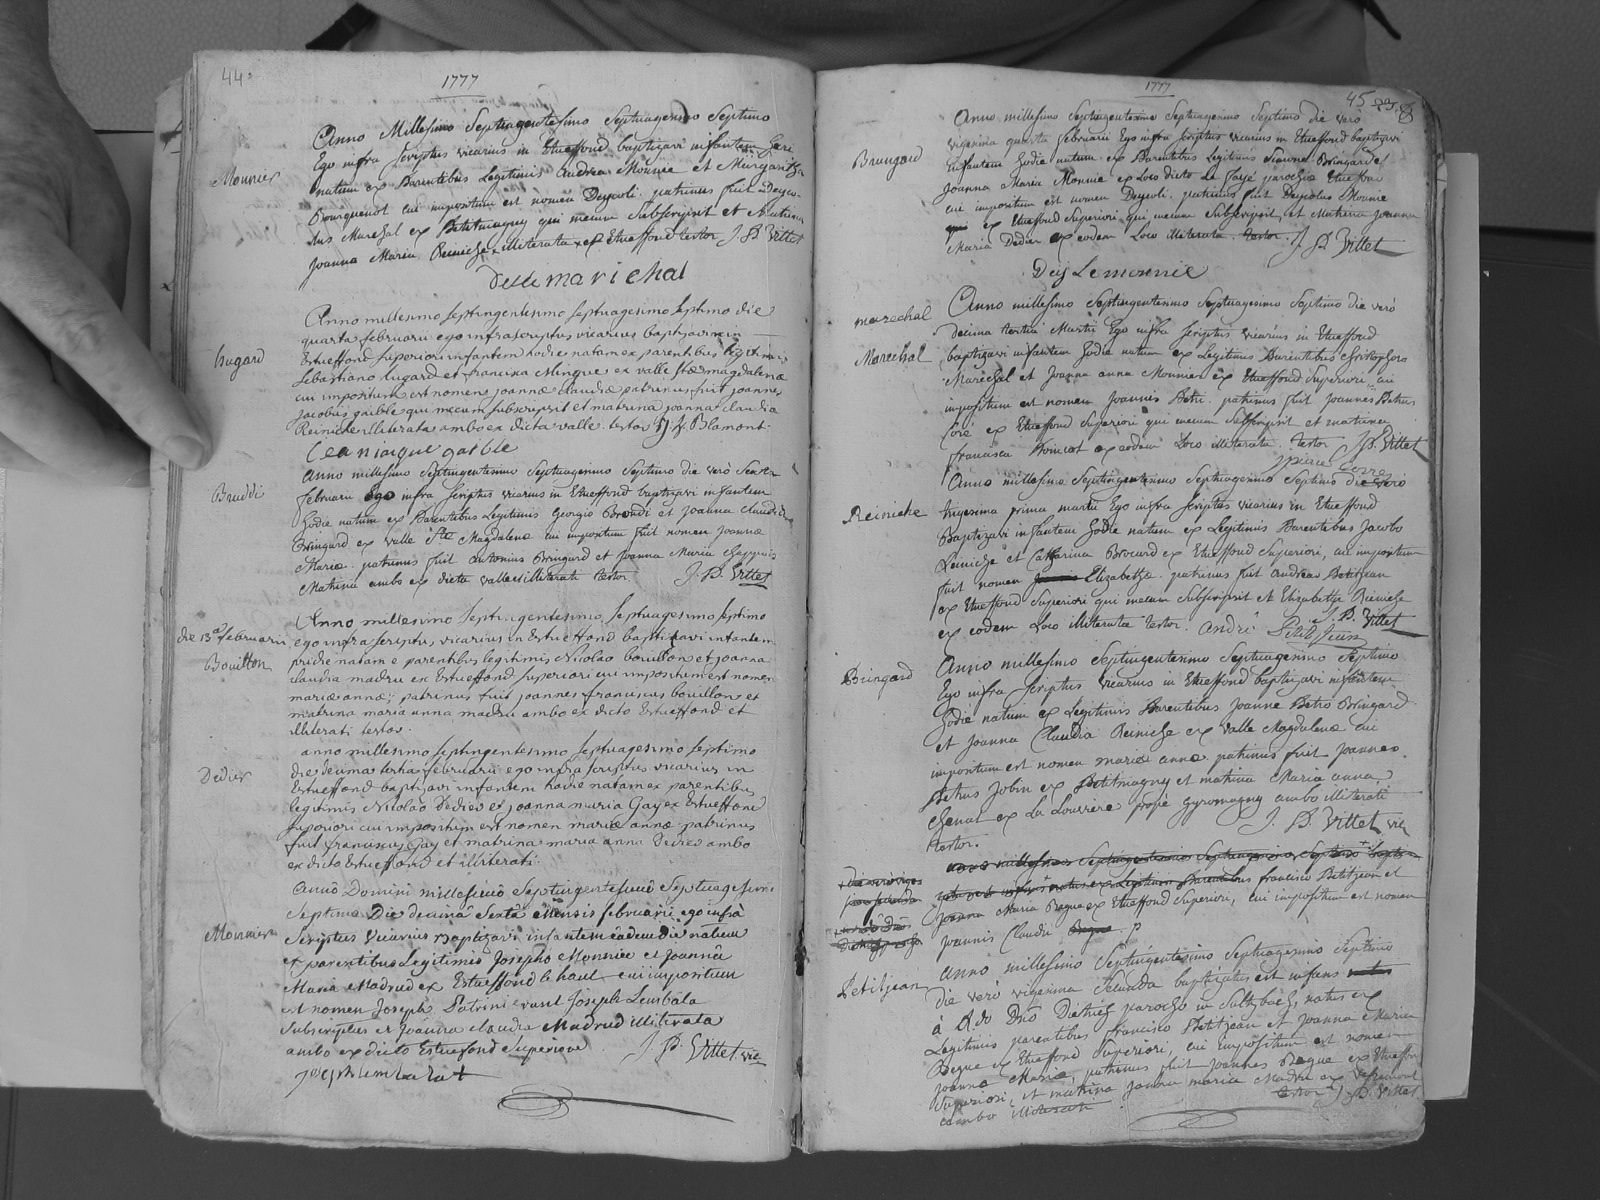 44
1777
Anno Millesimo Septuagentesimo Septuagesimo Septimo
Ego infra Scriptus vicarius in Etueffond baptizavi infantem heri
Monnier
natum ex Parentibus Legitimis Andrea Monnie et Margaritha
Bourquenot cui impositum est nomen Deycoli. patrinus fuit Deyco-
lus Marechal ex Petitmagny qui mecum Subscripsit et Matrina
Joanna Maria Reiniche illiterata ex Etueffond testor J. P. Vittet
Delle marichal
Anno millesimo septingentesimo septuagesimo septimo die
quarta februarii ego infrascriptus vicarius baptizavi in
hugard
Estueffond superiori infantem hodie natam ex parentibus legitimis
Sebastiano hugard et francisca Mingue ex valle stae magdalenae
cui impositum est nomen joannae claudiae patrinus fuit joannes
jacobus gaible qui mecum subscripsit et matrina joanna claudia
Reiniche illiterata ambo ex dicta valle. testor Blamont.
jean jaque gaible
Anno millesimo Septingentesimo Septuagesimo Septimo die verò Sexta
Bruddi
februarii Ego infra Scriptus vicarius in Etueffond baptizavi infantem
hodie natum ex Parentibus Legitimis Georgio Brondi et Joanna Claudia
Bringard ex valle Stae Magdalenae cui impositum fuit nomen Joannae
Mariae. patrinus fuit Antonius Bringard et Joanna Maria Chappuis
Matrina ambo ex dicta valle illiterati testor. J. P. Vittet
Anno millesimo septingentesimo septuagesimo septimo
die 13a februarii
ego infra scriptus vicarius in Estueffond baptizavi infantem
Bouillon
pridie natam e parentibus legitimis Nicolao bouillon et joanna
claudia madru ex Estueffond superiori cui impositum est nomen
mariae annae; patrinus fuit joannes franciscus bouillon et
matrina maria anna madru ambo ex dicto Estueffond et
illiterati testor.
anno millesimo septingentesimo septuagesimo septimo
Dedier
die decima tertia februarii ego infra scriptus vicarius in
Estueffond baptizavi infantem hodie natam ex parentibus
legitimis Nicolao Dedier et joanna maria Gay ex Estueffond
superiori cui impositum est nomen mariae annae patrinus
fuit franciscus Gay et matrina maria anna Dedier ambo
ex dicto Estueffond et illiterati.
Anno Domini millesimo Septingentesimo Septuagesimo
Septimo Die decima Sexta Mensis februarii ego infra
Monnier
Scriptus Vicarius Baptizavi infantem eadem die natum
et parentibus Legitimis Josepho Monnier et Joanna
Maria Madrud ex Estueffond le haut cui impositum
est nomen Joseph. Patrini erant Joseph Lembala
Subscriptus et Joanna claudia Madrud illiterata
ambo ex dicto Estueffond Superiore J. P. Vittet vic
joseph lembala +
1777
45
Anno millesimo Septingentesimo Septuagesimo Septimo die verò
vigesima quarta februarii Ego infra Scriptus vicarius in Etueffond baptizavi
Bringard
infantem hodie natum ex Parentibus Legitimis Bringard et
Joanna Maria Monnie ex Loco Dicto La faye parochiae Etueffond
cui impositum est nomen Deycoli. patrinus fuit Deycolus Monnie
ex Etueffond Superiori qui mecum Subscripsit, et Matrina Joanna
Maria Dedier ex eodem Loco illiterata. testor. J. P. Vittet
Deij Lemonnie
marechal
Anno millesimo Septingentesimo Septuagesimo Septimo die verò
decima tertia Martii Ego infra Scriptus vicarius in Etueffond
Marechal
baptizavi infantem hodie natum ex Legitimis Parentibus Christophoro
Marechal et Joanna anna Mounier ex Etueffond Superiori cui
impositum est nomen Joannis Petri. patrinus fuit Joannes Petrus
Coré ex Etueffond Superiori qui mecum Subscripsit et matrina
francisca ex eodem Loco illiterata. testor J. P. Vittet
jpiere Corre
Anno millesimo Septingentesimo Septuagesimo Septimo die verò
Reiniche
trigesima prima martii Ego infra Scriptus vicarius in Etueffond
Baptizavi infantem hodie natum ex Legitimis Parentibus Jacobo
Reiniche et Catharina Brocard ex Etueffond Superiori, cui impositum
fuit nomen Elizabethae. patrinus fuit Andreas Petitjean
ex Etueffond Superiori qui mecum Subscripsit et Elizabetha Reiniche
ex eodem Loco illiterata testor. J. P. Vittet
andré Petit jean
Anno millesimo Septingentesimo Septuagesimo Septimo
Bringard
Ego infra Scriptus vicarius in Etueffond baptizavi infantem
hodie natum ex Legitimis Parentibus Joanne Petro Bringard
et Joanna Claudia Reiniche ex valle Magdalenae cui
impositum est nomen mariae annae patrinus fuit Joannes
Petrus Jobin ex Petitmagny et matrina Maria anna
Chenat ex La Louviere prope gyromagny ambo illiterati
testor. J. P. Vittet vic
anno millesimo Septingentesimo Septuagesimo Septimo
natus ex Legitimis Parentibus francisco Petitjean et
Joanna Maria Begue ex Etueffond Superiori, cui impositum est nomen
Joannis Claudii
anno millesimo Septingentesimo Septuagesimo Septimo
Petitjean
die verò vigesima Secunda baptizatus est infans
à R.do Dno Dietrich parocho in Sultzbach, natus ex
Legitimis parentibus francisco Petitjean et Joanna Maria
Begue ex Etueffond Superiori, cui impositum est nomen
Joanna Maria, patrinus fuit Joannes Begue ex Etueffond
Superiori, et matrina Joanna maria Madru ex
ambo illiterati testor J. P. Vittet